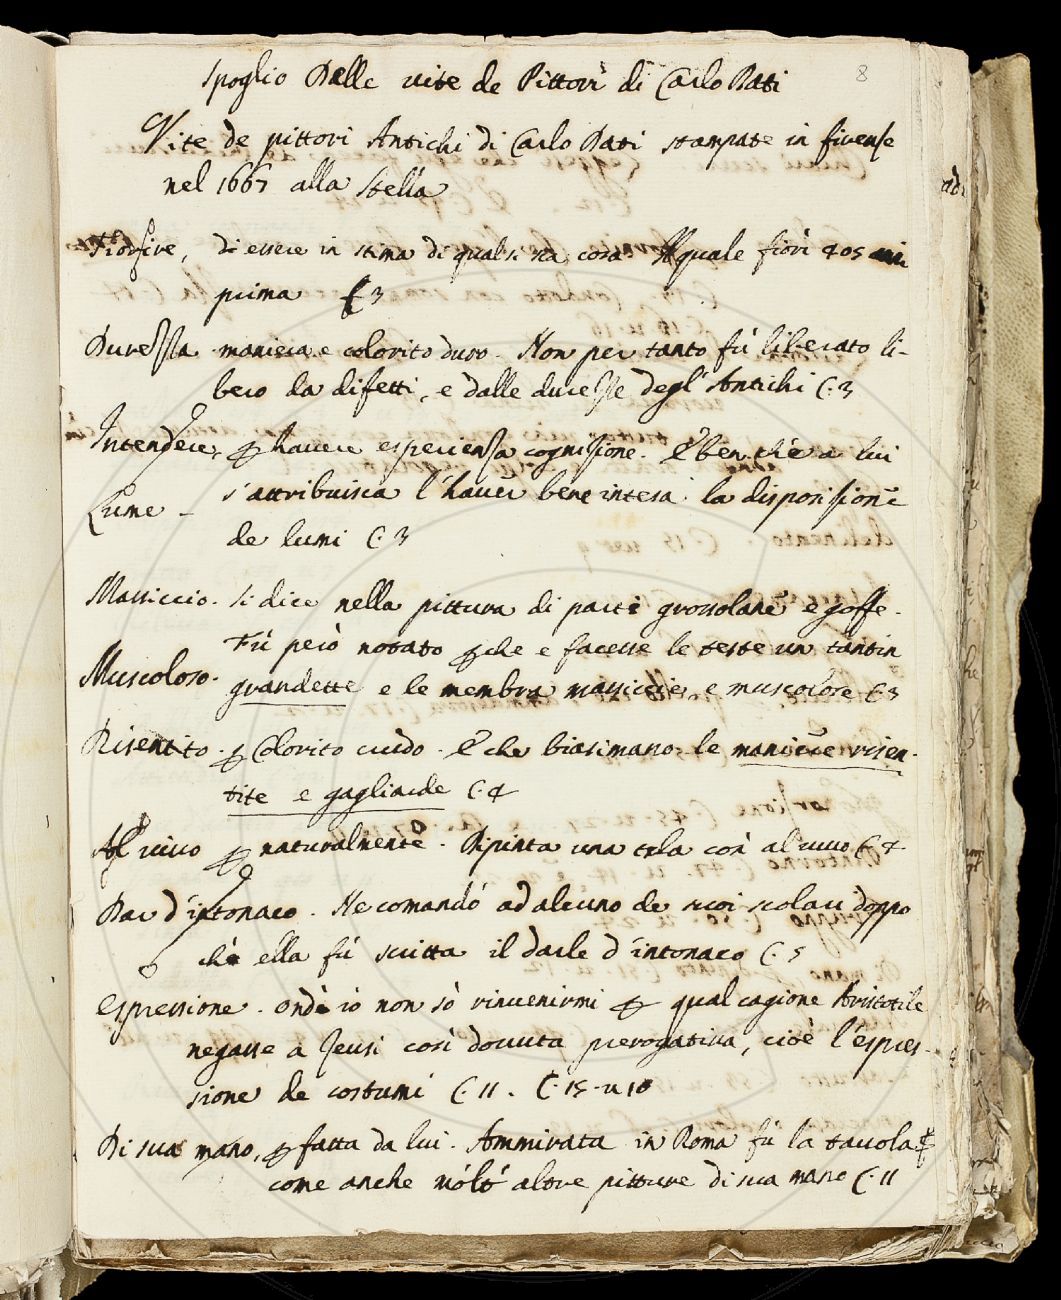 8
Spoglio Delle vite de Pittori di Carlo Dati
Vite de pittori Antichi di Carlo Dati stampate in firenze
nel 1667 alla Stella
Fiorire, di essere in stima di qualsisia cosa Il quale fiorì 405 anni
prima C 3
Durezza maniera e colorito duro. Non per tanto fù liberato li-
bero da difetti, e dalle durezze degl'Antichi C. 3
Intendere, p havere esperienza cognizione. E ben chè a lui
s'attribuisca l'haver bene intesa la disposizione
Lume -
de lumi C. 3
Massiccio. si dice nella pittura di parti grossolane e goffe.
Fù però notato pche e facesse le teste un tantin
Muscoloso.
grandette e le membra massiccie, e muscolose C 3
Risentito. p Colorito crudo. E che biasimano le maniere risen-
tite e gagliarde C. 4
Al vivo p naturalmente. Dipinta una tela così al vivo C. 4
Dar d'intonaco. Ne comandó ad alcuno de suoi scolari doppo
chè ella fù scritta il darle d'intonaco C. 5
Espressione. ond'io non sò rinvenirmi p qual cagione Aristotile
negasse a Zeusi così dovuta prerogativa, cioè l'espres-
sione de costumi C. 11. C. 15. u 10
Di sua mano, p fatta da lui. Ammirata in Roma fù la tavola
come anche molte altre pitture di sua mano C. 11